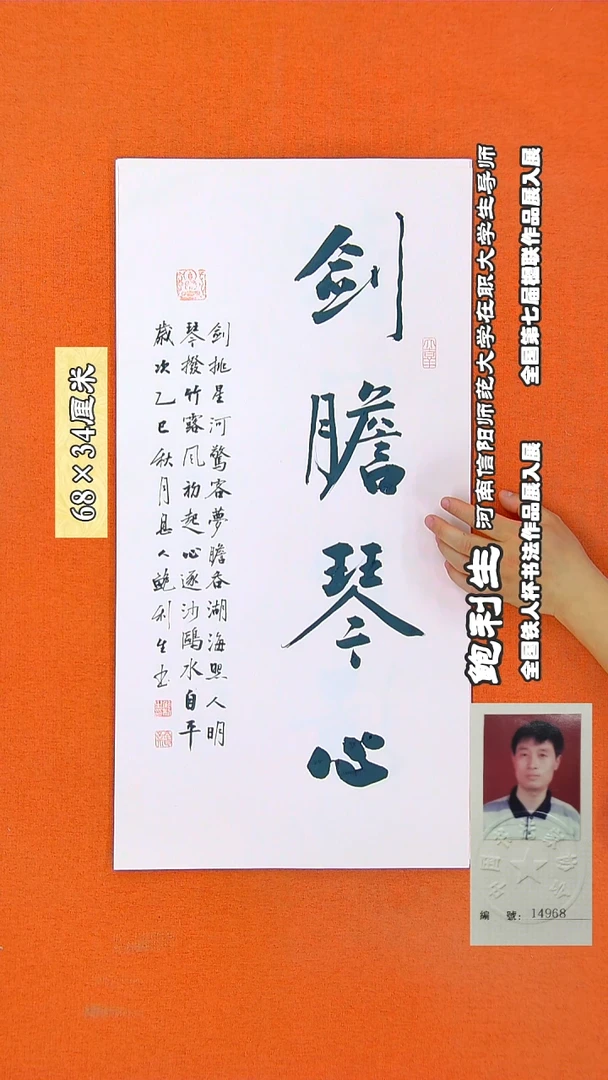 剑膽琴心
剑挑星河驚客夢膽吞湖海照人明
琴撥竹露风初起心逐沙鷗水自平
歲次乙巳秋月息人鲍利生书
68×34厘米
鲍利生 河南信阳师范大学在职大学生导师
全国铁人杯书法作品展入展 全国第七届楹联作品展入展
編 號: 14968